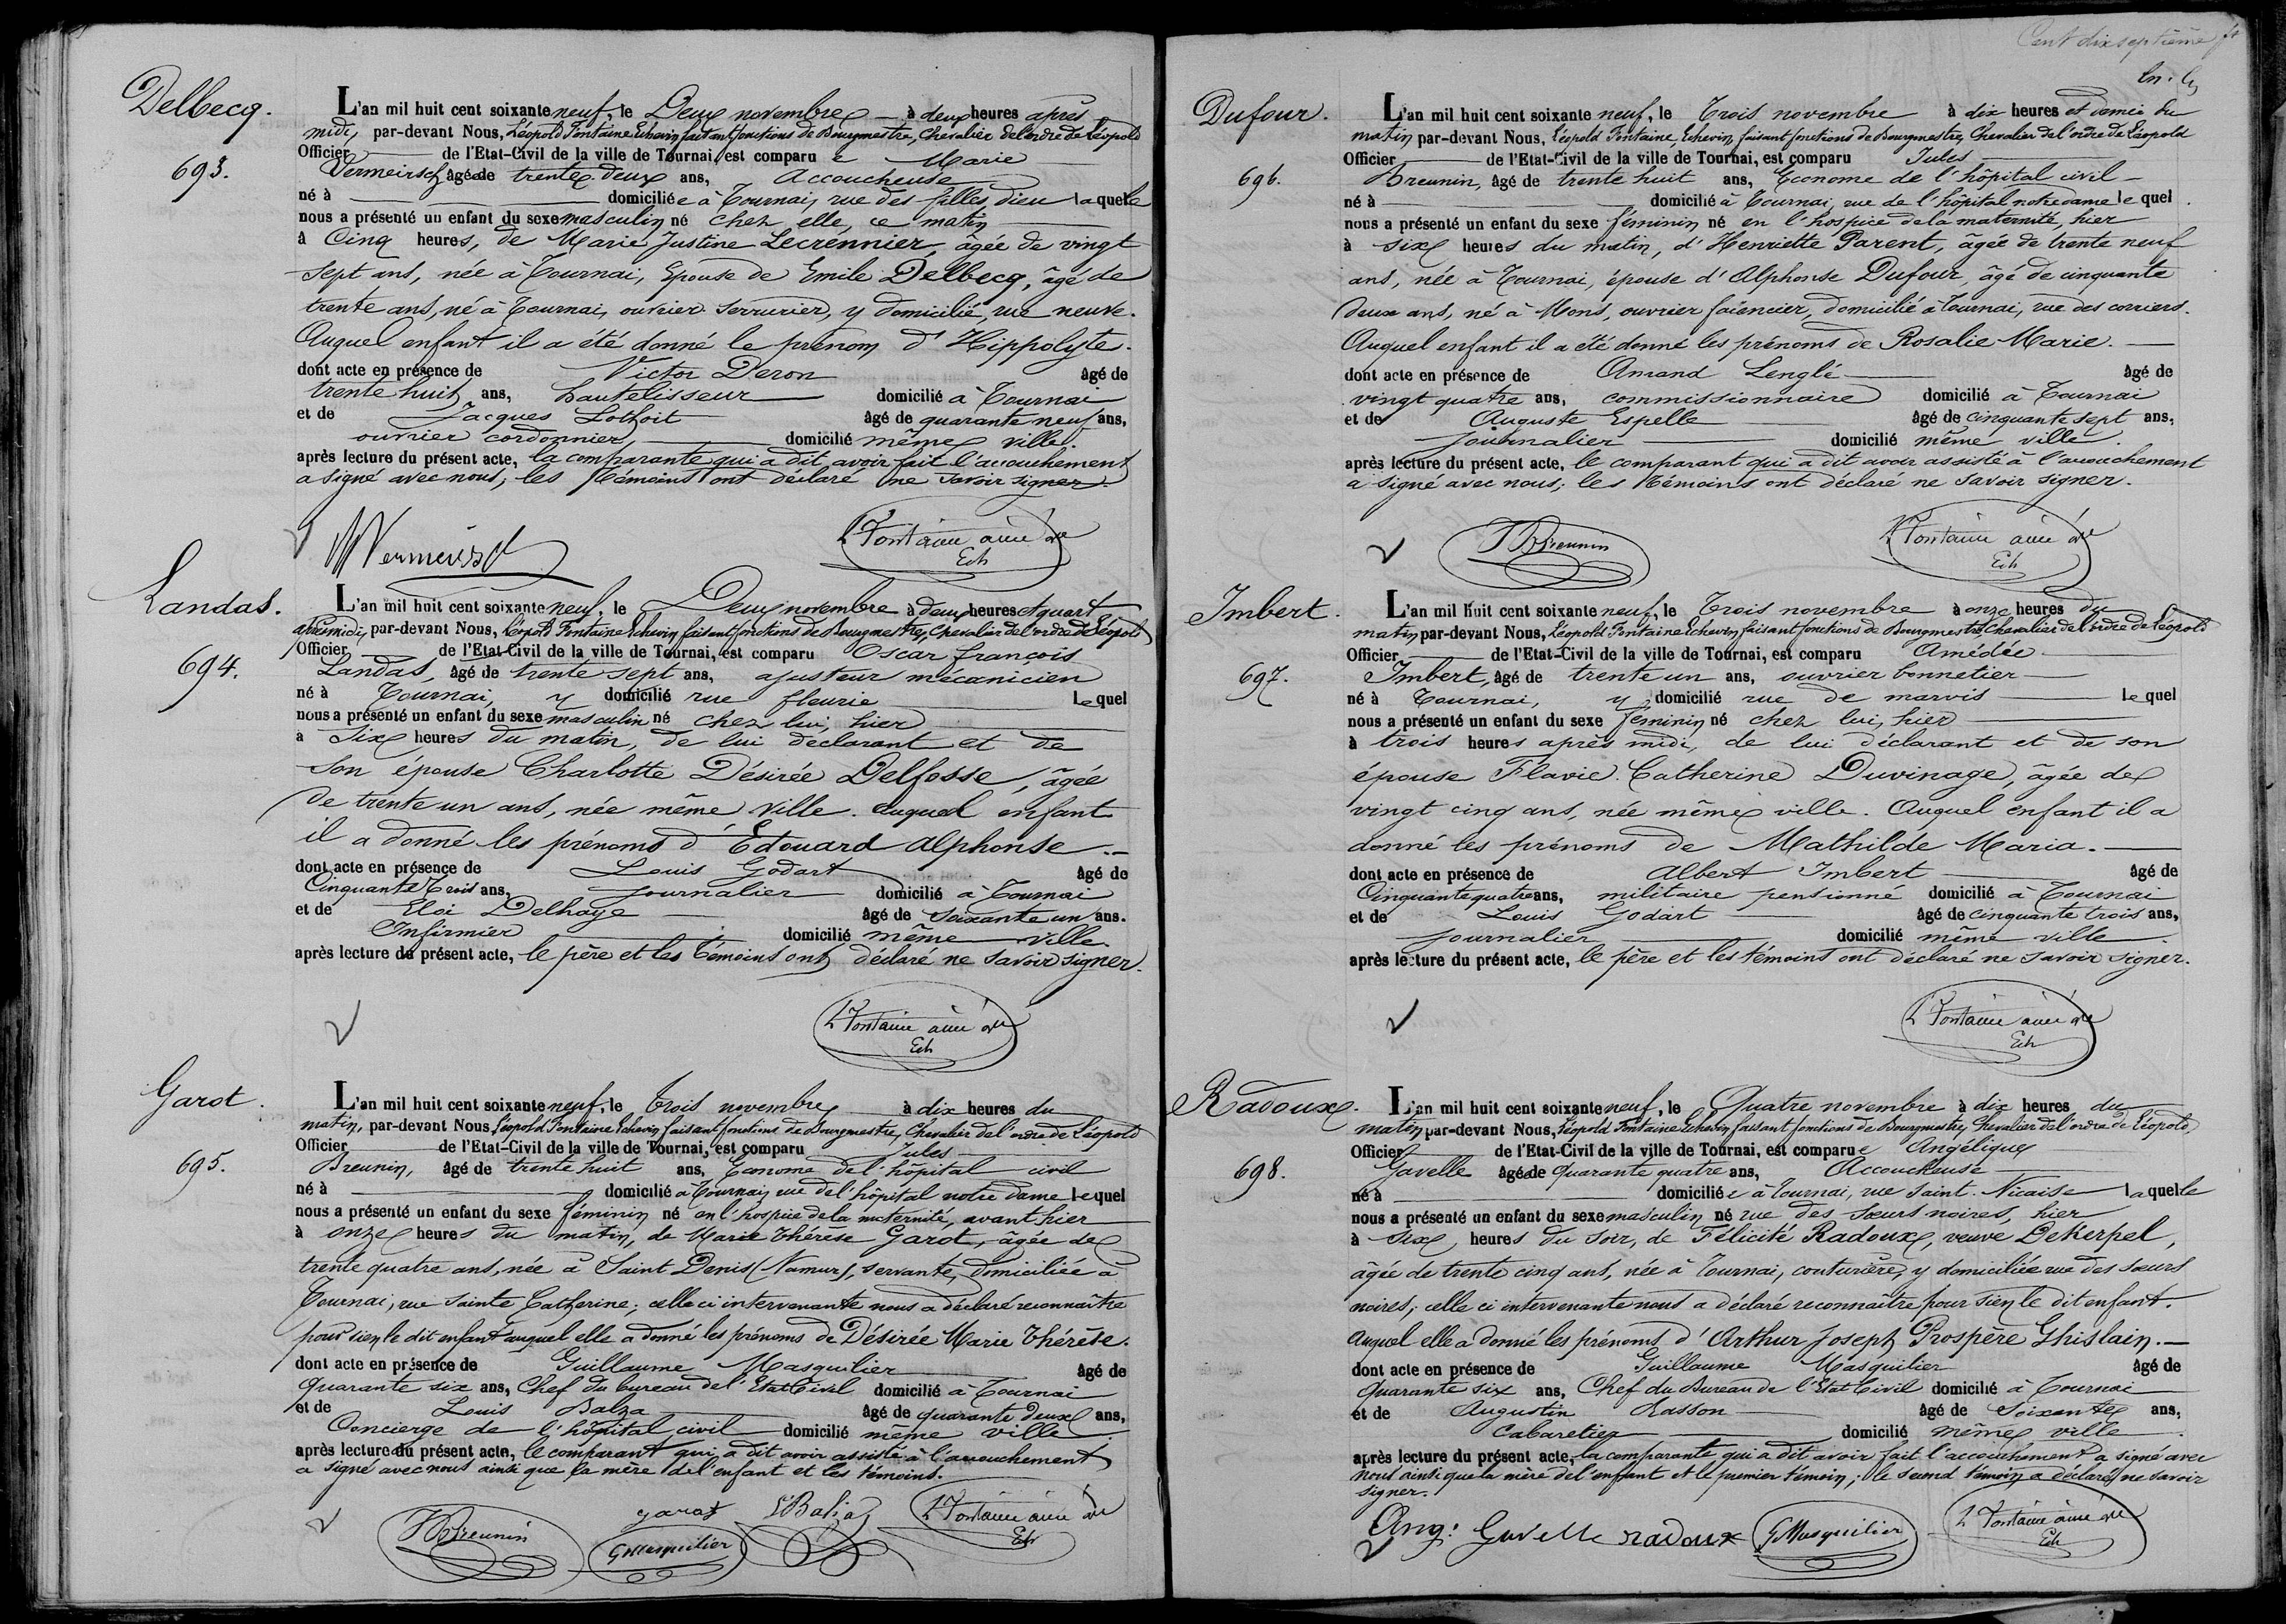 Delbecq.
693.
L'an mil huit cent soixante neuf, le Deux novembre à deux heures après
midi, par-devant Nous, Léopold Fontaine Echevin faisant fonctions de Bourgmestre, Chevalier de l'ordre de Léopold
Officier de l'Etat-Civil de la ville de Tournai, est comparue Marie
Vermeirsch, âgée de trente deux ans, Accoucheuse
né à domiciliée à Tournai, rue des filles dieu laquelle
nous a présenté un enfant du sexe masculin né chez elle, ce matin
à Cinq heures, de Marie Justine Lecrennier, âgée de vingt
sept ans, née à Tournai, Epouse de Emile Delbecq, âgé de
trente ans, né à Tournai, ouvrier serrurier, y domicilié, rue neuve.
Auquel enfant il a été donné le prénom d'Hippolyte.
dont acte en présence de Victor Deron âgé de
trente huit ans, hautelisseur domicilié à Tournai
et de Jacques Lothoit âgé de quarante neuf ans,
ouvrier cordonnier, domicilié même ville.
après lecture du présent acte, la comparante qui a dit avoir fait l'accouchement
a signé avec nous, les témoins ont déclaré ne savoir signer.
MVermeirsch
L Fontaine aîné
Ech
Landas.
694.
L'an mil huit cent soixante neuf, le Deux novembre à deux heures et quart
après midi, par-devant Nous, Léopold Fontaine Echevin faisant fonctions de Bourgmestre, Chevalier de l'ordre de Léopold
Officier de l'Etat-Civil de la ville de Tournai, est comparu Oscar françois
Landas, âgé de trente sept ans, ajusteur mécanicien
né à Tournai, y domicilié rue fleurie Lequel
nous a présenté un enfant du sexe masculin né chez lui, hier
à Six heures du matin, de lui déclarant et de
son épouse Charlotte Désirée Delfosse, âgée
de trente un ans, née même ville. auquel enfant
il a donné les prénoms d'Edouard Alphonse.
dont acte en présence de Louis Godart âgé de
Cinquante trois ans, journalier domicilié à Tournai
et de Eloi Delhaye âgé de soixante un ans.
Infirmier domicilié même ville
après lecture du présent acte, le père et les témoins ont déclaré ne savoir signer.
L Fontaine aîné
Ech
Garot.
695.
L'an mil huit cent soixante neuf, le trois novembre à dix heures du
matin, par-devant Nous, Léopold Fontaine Echevin faisant fonctions de Bourgmestre, Chevalier de l'ordre de Léopold
Officier de l'Etat-Civil de la ville de Tournai, est comparu Jules
Breunin, âgé de trente huit ans, Econome de l'hôpital civil
né à domicilié à Tournai, rue de l'hôpital notre dame Lequel
nous a présenté un enfant du sexe féminin né en l'hospice de la maternité, avant hier
à onze heures du matin, de Marie thérèse Garot, âgée de
trente quatre ans, née à Saint Denis (Namur), servante, domiciliée à
Tournai, rue Sainte Catherine; celle ci intervenante nous a déclaré reconnaître
pour sien le dit enfant auquel elle a donné les prénoms de Désirée Marie Thérèse.
dont acte en présence de Guillaume Masquilier âgé de
quarante six ans, Chef du bureau de l'Etat Civil domicilié à Tournai
et de Louis Balza âgé de quarante deux ans,
Concierge de l'hôpital civil domicilié même ville.
après lecture du présent acte, le comparant qui a dit avoir assisté à l'accouchement
a signé avec nous ainsi que la mère de l'enfant et les témoins.
JBreunin
garot
GMasquilier
LBalza
L Fontaine aîné
Ech
Cent dix septième
Dufour.
696.
L'an mil huit cent soixante neuf, le trois novembre à dix heures et demie du
matin par-devant Nous, Léopold Fontaine, Echevin, faisant fonctions de Bourgmestre, Chevalier de l'ordre de Léopold
Officier de l'Etat-Civil de la ville de Tournai, est comparu Jules
Breunin, âgé de trente huit ans, Econome de l'hôpital civil
né à domicilié à Tournai, rue de l'hôpital notre dame lequel
nous a présenté un enfant du sexe féminin né en l'hospice de la maternité, hier
à six heures du matin, d'Henriette Parent, âgée de trente neuf
ans, née à Tournai, épouse d'Alphonse Dufour, âgé de cinquante
deux ans, né à Mons, ouvrier faïencier, domicilié à Tournai, rue des corriers.
Auquel enfant il a été donné les prénoms de Rosalie Marie.
dont acte en présence de Amand Lenglé âgé de
vingt quatre ans, commissionnaire domicilié à Tournai
et de Auguste Espelle âgé de cinquante sept ans,
journalier domicilié même ville.
après lecture du présent acte, le comparant qui a dit avoir assisté à l'accouchement
a signé avec nous; les témoins ont déclaré ne savoir signer.
JBreunin
L Fontaine aîné
Ech
Imbert.
697.
L'an mil huit cent soixante neuf, le trois novembre à onze heures du
matin par-devant Nous, Léopold Fontaine Echevin faisant fonctions de Bourgmestre, Chevalier de l'ordre de Léopold
Officier de l'Etat-Civil de la ville de Tournai, est comparu Amédée
Imbert, âgé de trente un ans, ouvrier bonnetier
né à Tournai, y domicilié rue de marvis Lequel
nous a présenté un enfant du sexe féminin né chez lui, hier
à trois heures après midi, de lui déclarant et de son
épouse Flavie Catherine Duvinage, âgée de
vingt cinq ans, née même ville. Auquel enfant il a
donné les prénoms de Mathilde Maria.
dont acte en présence de Albert Imbert âgé de
Cinquante quatre ans, militaire pensionné domicilié à Tournai
et de Louis Godart âgé de cinquante trois ans,
journalier domicilié même ville.
après lecture du présent acte, le père et les témoins ont déclaré ne savoir signer.
L Fontaine aîné
Ech
Radoux.
698.
L'an mil huit cent soixante neuf, le Quatre novembre à dix heures du
matin par-devant Nous, Léopold Fontaine Echevin faisant fonctions de Bourgmestre, Chevalier de l'ordre de Léopold,
Officier de l'Etat-Civil de la ville de Tournai, est comparue Angélique
Gavelle âgée de quarante quatre ans, Accoucheuse
né à domiciliée à Tournai, rue Saint Nicaise laquelle
nous a présenté un enfant du sexe masculin né rue des Sœurs noires, hier
à Six heures du soir, de Félicité Radoux, veuve Dekerpel,
âgée de trente cinq ans, née à Tournai, couturière, y domiciliée rue des sœurs
noires; celle ci intervenante nous a déclaré reconnaître pour sien le dit enfant.
Auquel elle a donné les prénoms d'Arthur Joseph Prospère Ghislain.
dont acte en présence de Guillaume Masquilier âgé de
quarante six ans, Chef du Bureau de l'Etat Civil domicilié à Tournai
et de Augustin Rasson âgé de Soixante ans,
Cabaretier domicilié même ville.
après lecture du présent acte, la comparante qui a dit avoir fait l'accouchement a signé avec
nous ainsi que la mère de l'enfant et le premier témoin; le second témoin a déclaré ne savoir
signer.
Ang: Gavelle
radoux
GMasquilier
L Fontaine aîné
Ech